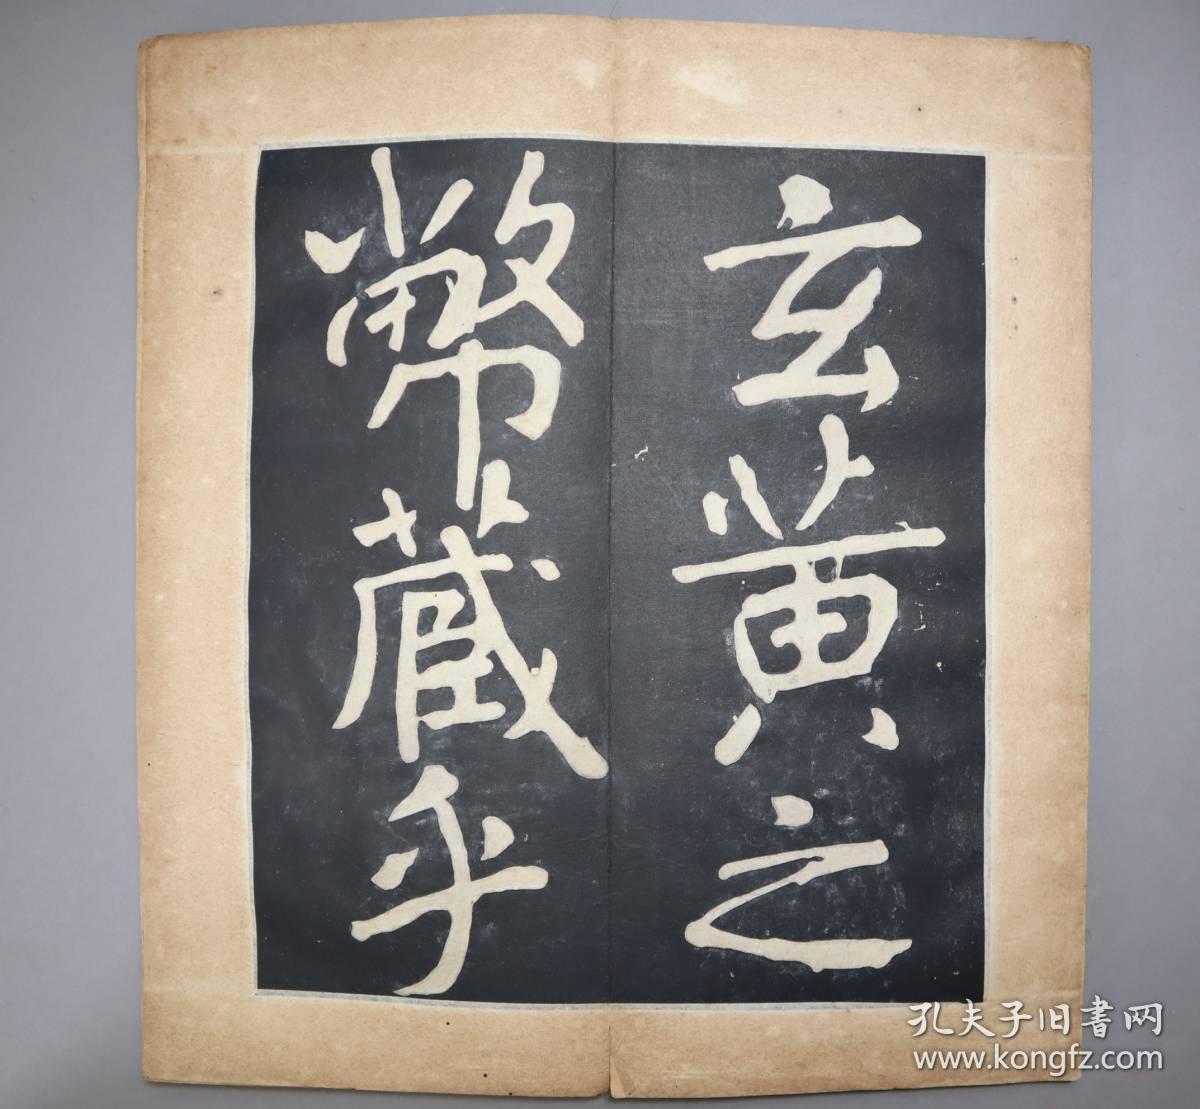 玄黄之
幣藏乎
孔夫子旧書网
www.kongfz.com